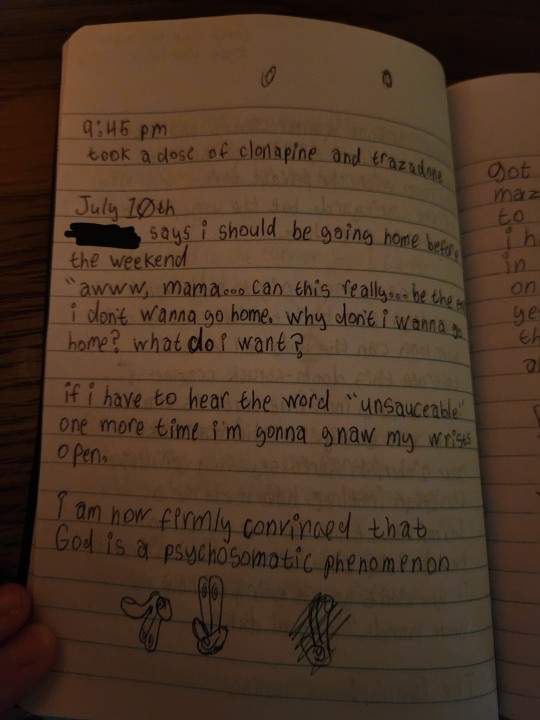 9:45 pm
took a dose of clonapine and trazadone
July 10th
says i should be going home before
the weekend
"awww, mama... can this really... be the
i don't wanna go home. why don't i wanna go
home? what do i want?
if i have to hear the word "unsauceable"
one more time i'm gonna gnaw my wrists
open.
i am now firmly convinced that
God is a psychosomatic phenomenon
got
maz
to
i h
in
on
ye
th
a